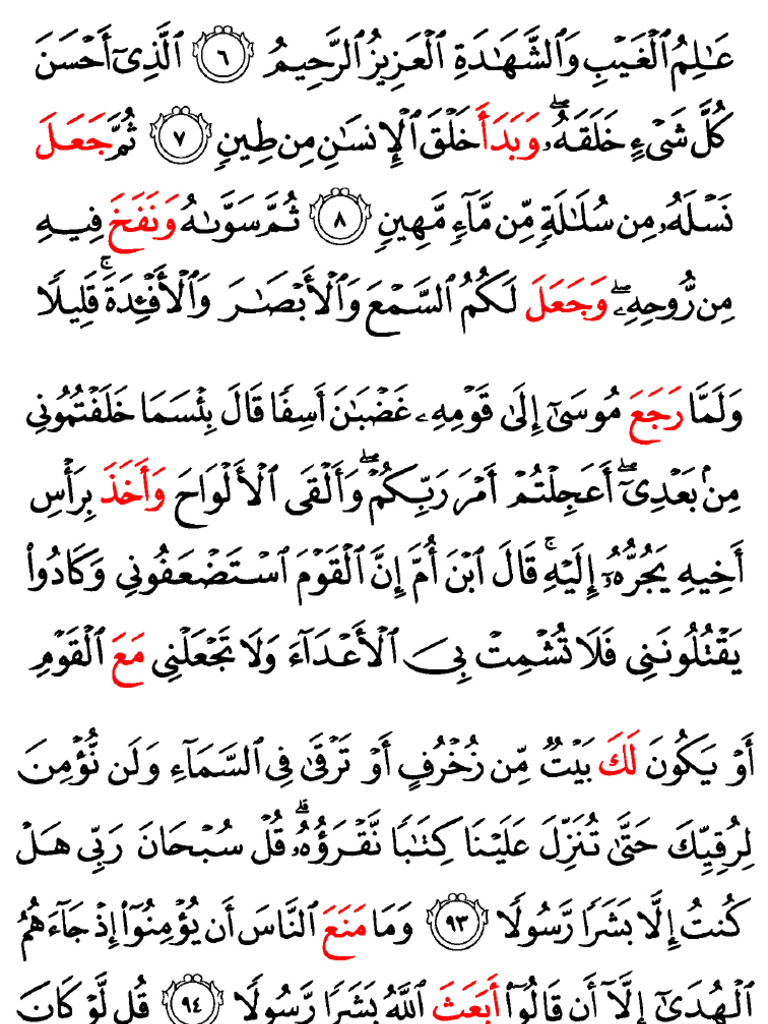 عَـٰلِمُ ٱلْغَيْبِ وَٱلشَّهَـٰدَةِ ٱلْعَزِيزُ ٱلرَّحِيمُ ٦ ٱلَّذِىٓ أَحْسَنَ
كُلَّ شَىْءٍ خَلَقَهُۥ ۖ وَبَدَأَ خَلْقَ ٱلْإِنسَـٰنِ مِن طِينٍ ٧ ثُمَّ جَعَلَ
نَسْلَهُۥ مِن سُلَـٰلَةٍ مِّن مَّآءٍ مَّهِينٍ ٨ ثُمَّ سَوَّىٰهُ وَنَفَخَ فِيهِ
مِن رُّوحِهِۦ ۖ وَجَعَلَ لَكُمُ ٱلسَّمْعَ وَٱلْأَبْصَـٰرَ وَٱلْأَفْـِٔدَةَ ۚ قَلِيلًا
وَلَمَّا رَجَعَ مُوسَىٰٓ إِلَىٰ قَوْمِهِۦ غَضْبَـٰنَ أَسِفًا قَالَ بِئْسَمَا خَلَفْتُمُونِى
مِنۢ بَعْدِىٓ ۖ أَعَجِلْتُمْ أَمْرَ رَبِّكُمْ ۖ وَأَلْقَى ٱلْأَلْوَاحَ وَأَخَذَ بِرَأْسِ
أَخِيهِ يَجُرُّهُۥٓ إِلَيْهِ ۚ قَالَ ٱبْنَ أُمَّ إِنَّ ٱلْقَوْمَ ٱسْتَضْعَفُونِى وَكَادُوا۟
يَقْتُلُونَنِى فَلَا تُشْمِتْ بِىَ ٱلْأَعْدَآءَ وَلَا تَجْعَلْنِى مَعَ ٱلْقَوْمِ
أَوْ يَكُونَ لَكَ بَيْتٌ مِّن زُخْرُفٍ أَوْ تَرْقَىٰ فِى ٱلسَّمَآءِ وَلَن نُّؤْمِنَ
لِرُقِيِّكَ حَتَّىٰ تُنَزِّلَ عَلَيْنَا كِتَـٰبًا نَّقْرَؤُهُۥ ۗ قُلْ سُبْحَانَ رَبِّى هَلْ
كُنتُ إِلَّا بَشَرًا رَّسُولًا ٩٣ وَمَا مَنَعَ ٱلنَّاسَ أَن يُؤْمِنُوٓا۟ إِذْ جَآءَهُمُ
ٱلْهُدَىٰٓ إِلَّآ أَن قَالُوٓا۟ أَبَعَثَ ٱللَّهُ بَشَرًا رَّسُولًا ٩٤ قُل لَّوْ كَانَ